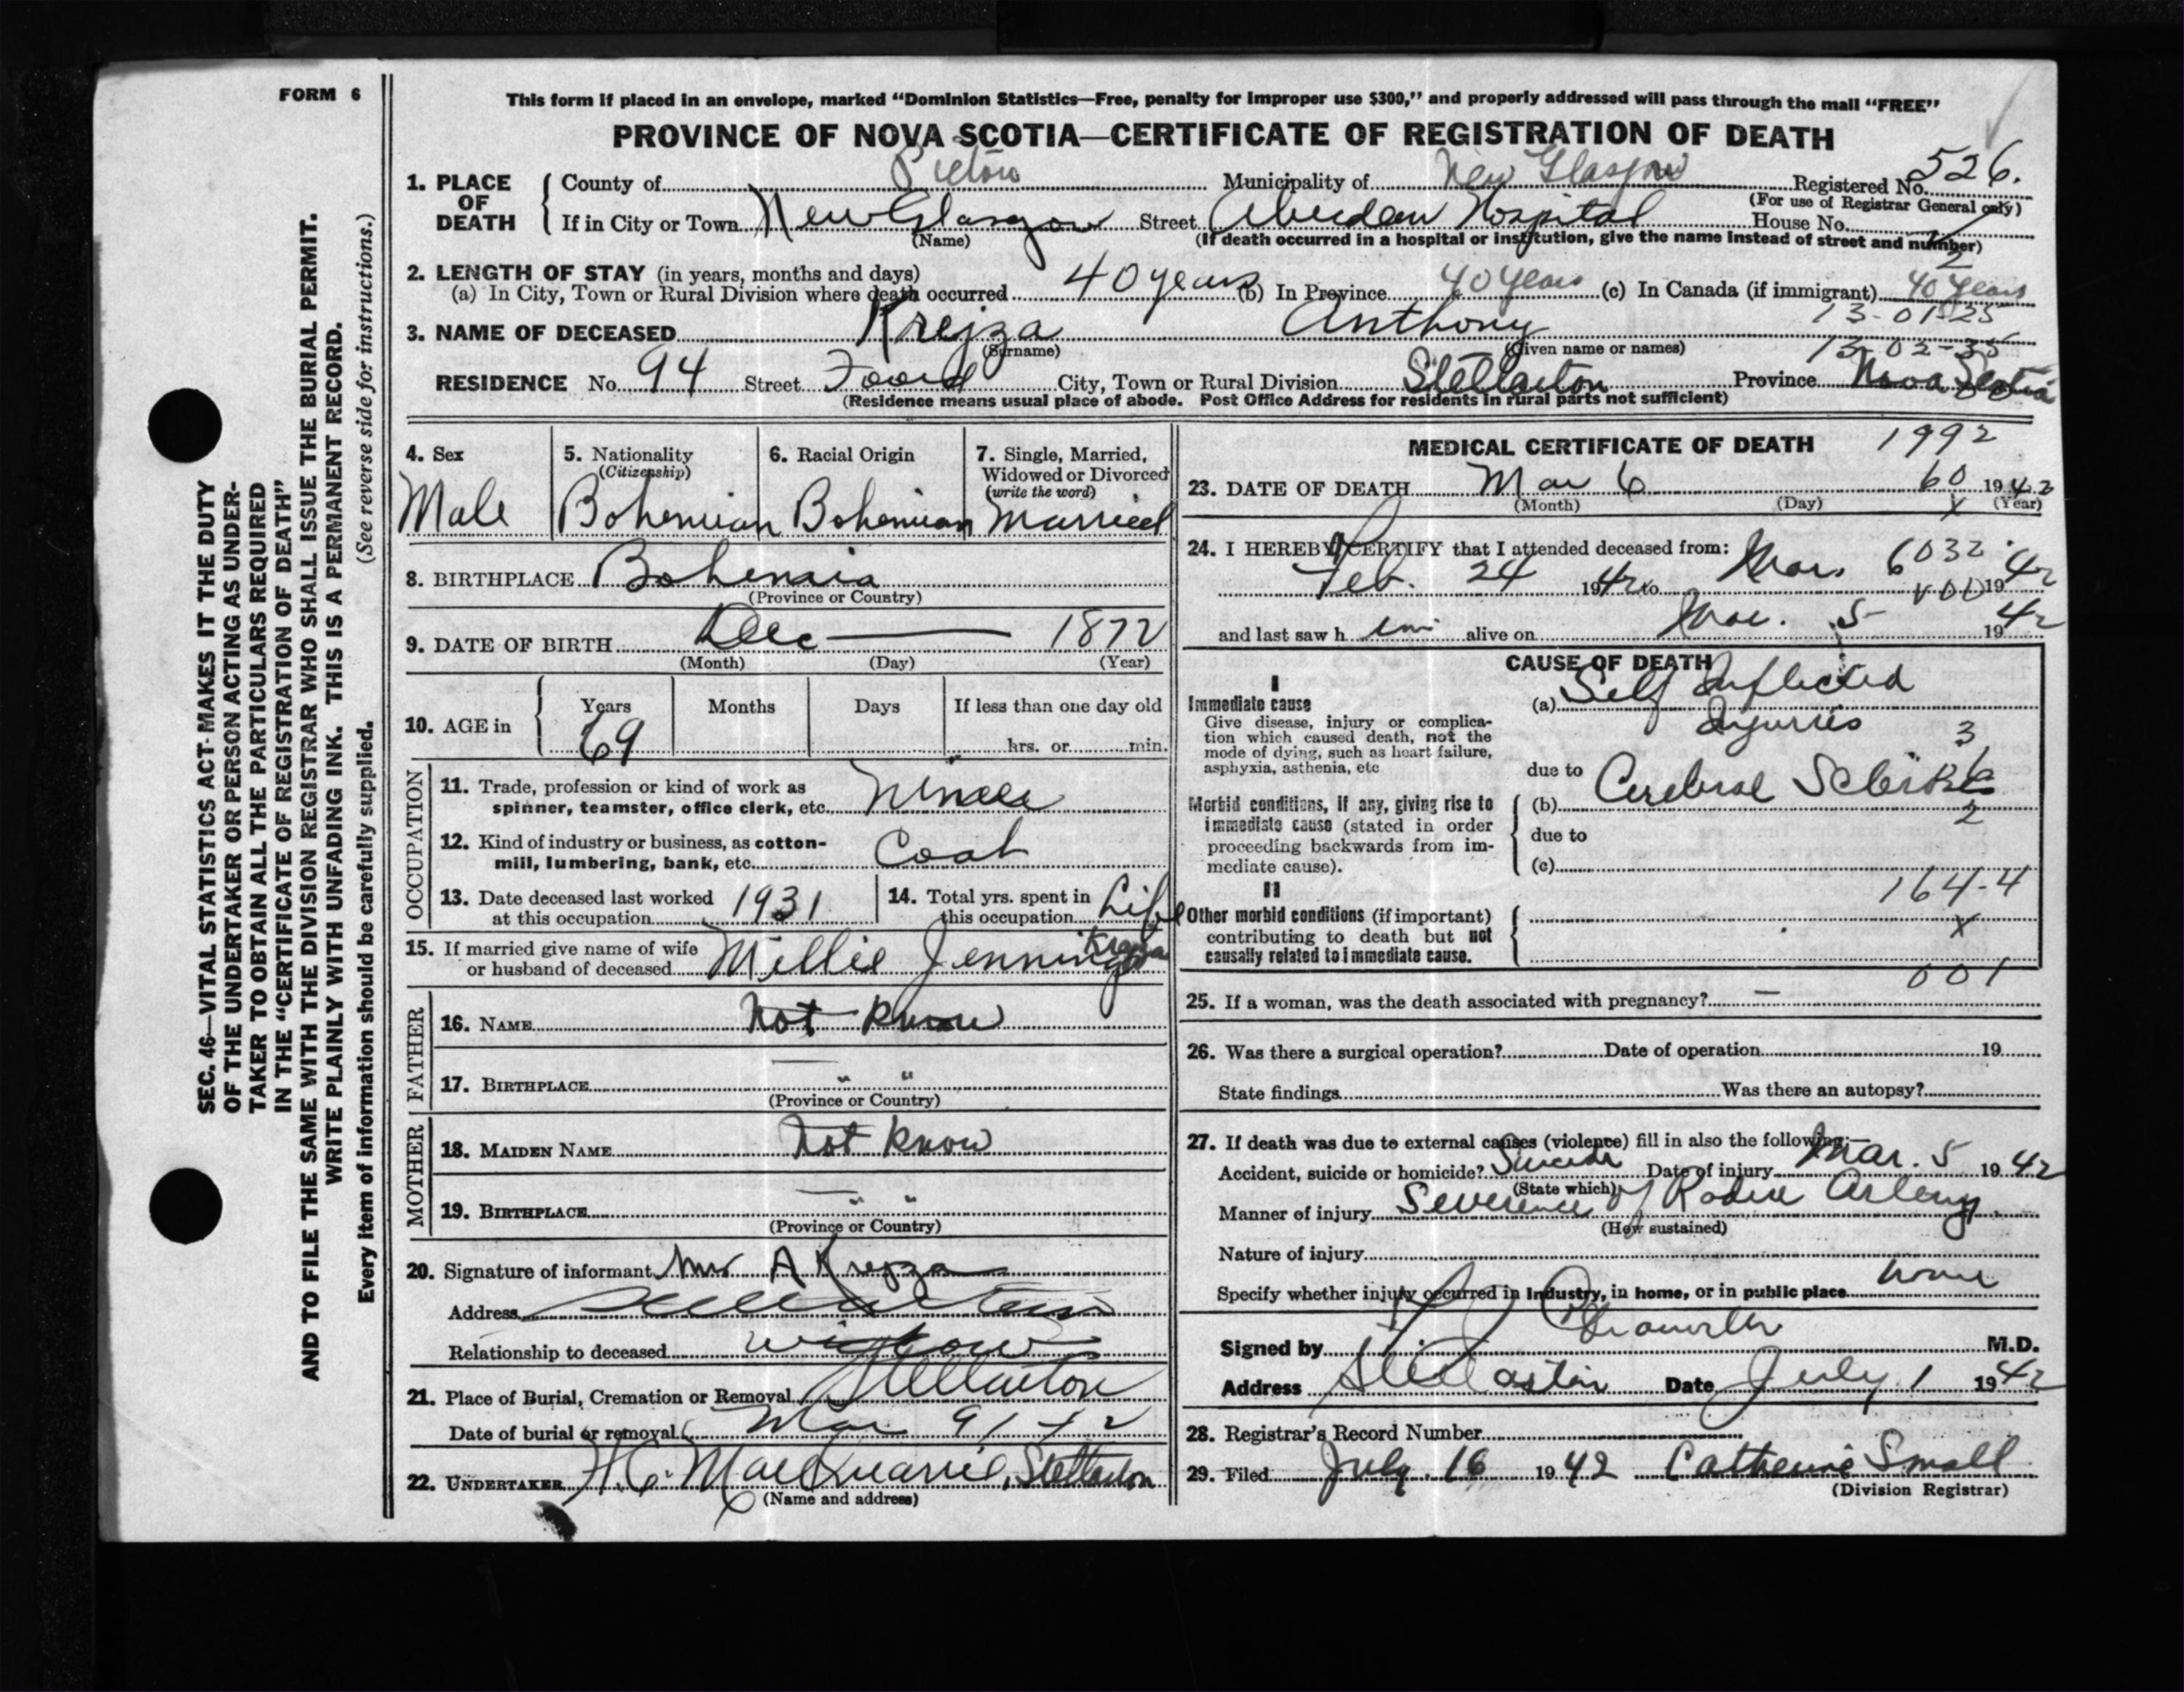 FORM 6
This form if placed in an envelope, marked “Dominion Statistics—Free, penalty for improper use $300,” and properly addressed will pass through the mail “FREE”
PROVINCE OF NOVA SCOTIA—CERTIFICATE OF REGISTRATION OF DEATH
SEC. 46—VITAL STATISTICS ACT-MAKES IT THE DUTY
OF THE UNDERTAKER OR PERSON ACTING AS UNDER-
TAKER TO OBTAIN ALL THE PARTICULARS REQUIRED
IN THE “CERTIFICATE OF REGISTRATION OF DEATH”
AND TO FILE THE SAME WITH THE DIVISION REGISTRAR WHO SHALL ISSUE THE BURIAL PERMIT.
WRITE PLAINLY WITH UNFADING INK. THIS IS A PERMANENT RECORD.
Every item of information should be carefully supplied. (See reverse side for instructions.)
1. PLACE OF DEATH County of Pictou Municipality of New Glasgow Registered No. 526.
(For use of Registrar General only)
If in City or Town New Glasgow Street Aberdeen Hospital House No.
(Name) (If death occurred in a hospital or institution, give the name instead of street and number)
2
2. LENGTH OF STAY (in years, months and days)
(a) In City, Town or Rural Division where death occurred 40 years (b) In Province 40 years (c) In Canada (if immigrant) 40 years
13-01-25
3. NAME OF DECEASED Krejza Anthony
(Surname) (Given name or names) 13-02-35
RESIDENCE No. 94 Street Foord City, Town or Rural Division Stellarton Province Nova Scotia
(Residence means usual place of abode. Post Office Address for residents in rural parts not sufficient)
4. Sex Male
5. Nationality (Citizenship) Bohemian
6. Racial Origin Bohemian
7. Single, Married, Widowed or Divorced (write the word) Married
8. BIRTHPLACE Bohemia
(Province or Country)
9. DATE OF BIRTH Dec — 1872
(Month) (Day) (Year)
10. AGE in Years Months Days If less than one day old
69 hrs. or min.
OCCUPATION
11. Trade, profession or kind of work as
spinner, teamster, office clerk, etc. Miner
12. Kind of industry or business, as cotton-
mill, lumbering, bank, etc. Coal
13. Date deceased last worked at this occupation 1931
14. Total yrs. spent in this occupation Life
15. If married give name of wife
or husband of deceased Millie Jennings Krejza
FATHER
16. NAME Not Know
17. BIRTHPLACE " "
(Province or Country)
MOTHER
18. MAIDEN NAME Not Know
19. BIRTHPLACE " "
(Province or Country)
20. Signature of informant Mrs A Krejza
Address Stellarton
Relationship to deceased widow
21. Place of Burial, Cremation or Removal Stellarton
Date of burial or removal Mar 9/42
22. UNDERTAKER H.C. MacQuarrie, Stellarton
(Name and address)
MEDICAL CERTIFICATE OF DEATH 1992
23. DATE OF DEATH Mar 6 60 1942
(Month) (Day) X (Year)
24. I HEREBY CERTIFY that I attended deceased from:
Feb. 24 1942 to Mar. 6 032 1942
and last saw h im alive on Mar. 5 1942
CAUSE OF DEATH
I
Immediate cause
Give disease, injury or complica-
tion which caused death, not the
mode of dying, such as heart failure,
asphyxia, asthenia, etc
(a) Self Inflicted
Injuries 3
due to
Morbid conditions, if any, giving rise to
immediate cause (stated in order
proceeding backwards from im-
mediate cause).
(b) Cerebral Sclerosis
2
due to
(c)
164-4
II
Other morbid conditions (if important)
contributing to death but not
causally related to immediate cause.
X
001
25. If a woman, was the death associated with pregnancy? —
26. Was there a surgical operation? Date of operation 19
State findings Was there an autopsy?
27. If death was due to external causes (violence) fill in also the following:—
Accident, suicide or homicide? Suicide Date of injury Mar. 5 1942
(State which)
Manner of injury Severence of Radial Artery.
(How sustained)
Nature of injury
Specify whether injury occurred in Industry, in home, or in public place home
Signed by M.D.
Address Stellarton Date July 1 1942
28. Registrar's Record Number
29. Filed July 16 1942 Catherine Small
(Division Registrar)